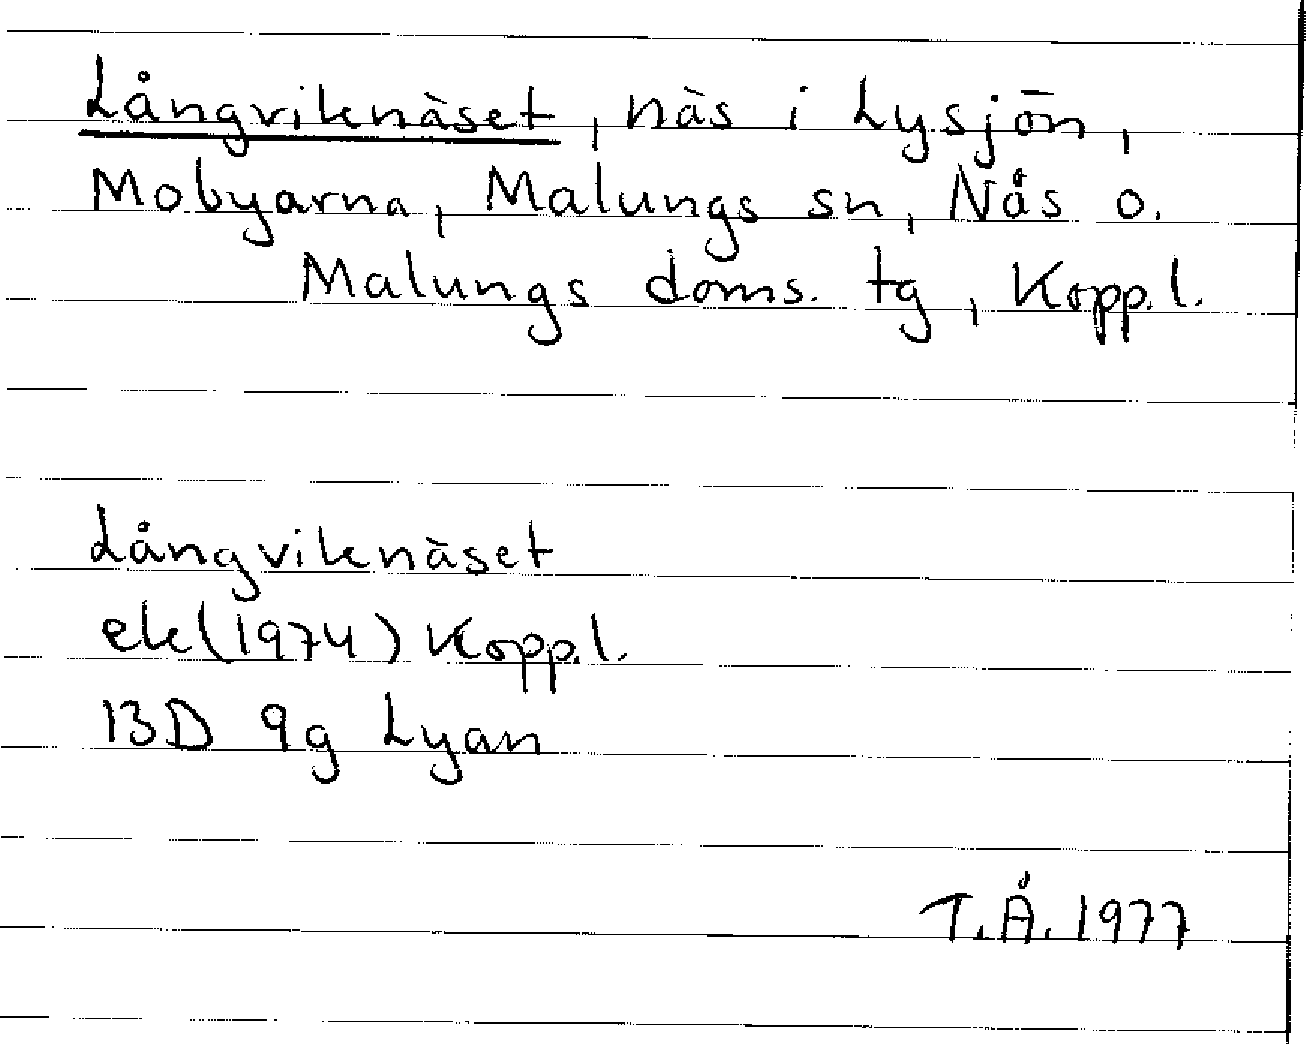 Långviknäset, näs i Lysjön,
Mobyarna, Malungs sn, Nås o.
Malungs doms. tg, Kopp.l.
Långviknäset
ek(1974) Kopp.l.
13D 9g Lyan
T.Å. 1977